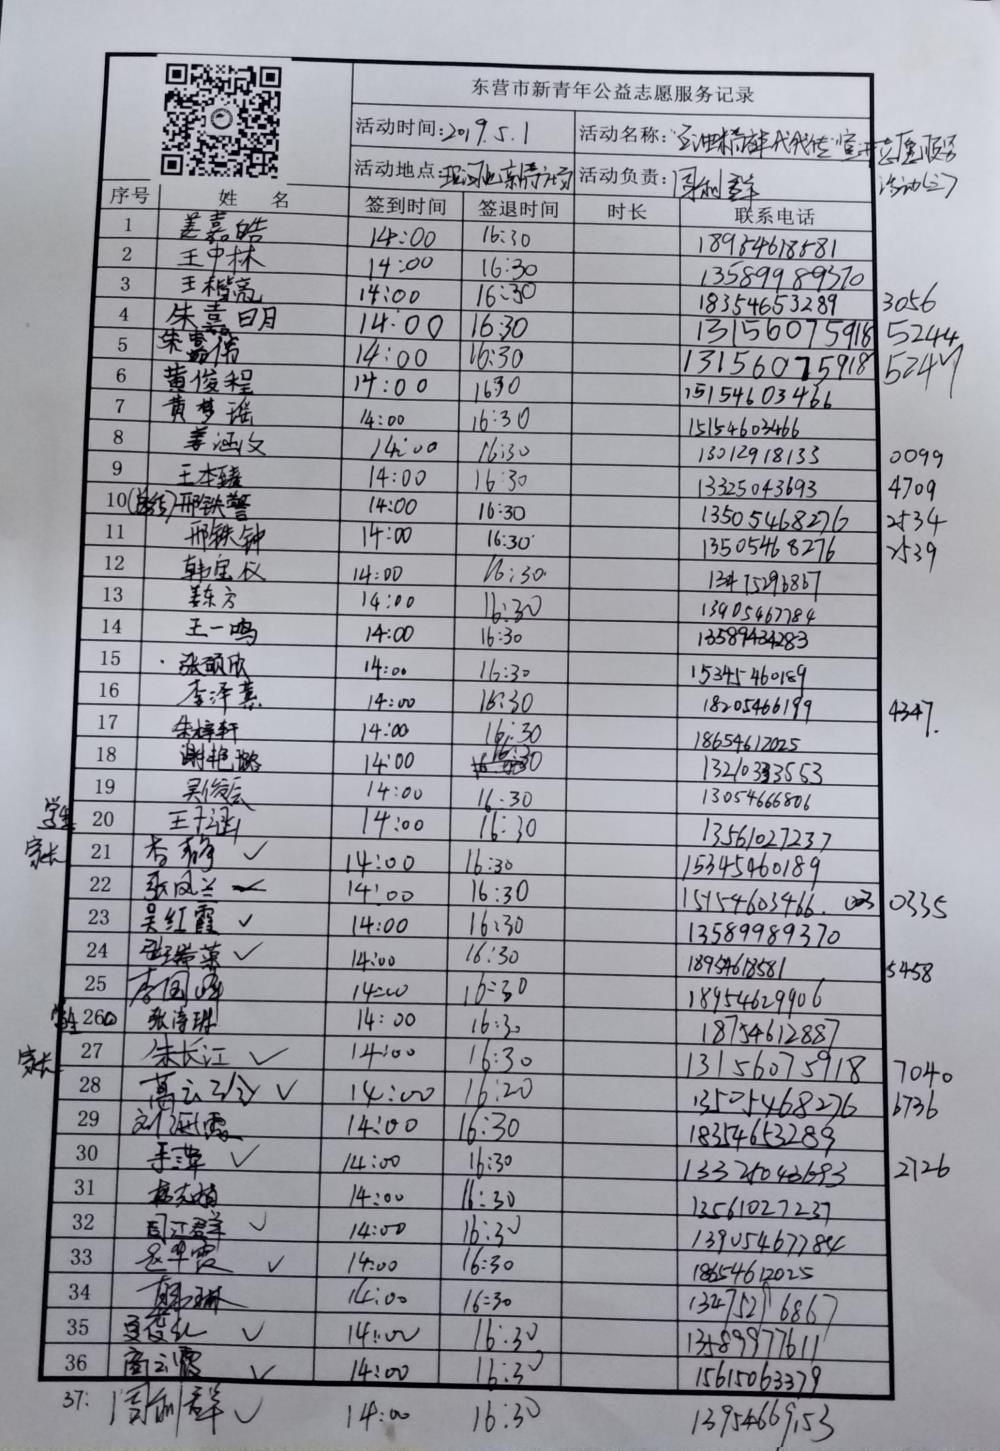 东营市新青年公益志愿服务记录
活动时间:2019.5.1 活动名称:石油精神代代传
活动地点: 活动负责:周利群
序号 姓名 签到时间 签退时间 时长 联系电话
1 姜嘉皓 14:00 16:30 18954618581
2 王中林 14:00 16:30 13589989370
3 王楷亮 14:00 16:30 18354653289 3056
4 朱嘉明 14:00 16:30 13156075918 5244
5 朱嘉伟 14:00 16:30 13156075918 5247
6 黄俊程 14:00 16:30 15154603466
7 黄梦瑶 14:00 16:30 15154603466
8 姜涵文 14:00 16:30 13012918133 0099
9 王本臻 14:00 16:30 13325043693 4709
10 邢铁警 14:00 16:30 13505468276 2534
11 邢铁钟 14:00 16:30 13505468276 2539
12 韩宝仪 14:00 16:30 13475296867
13 姜东方 14:00 16:30 13905467784
14 王一鸣 14:00 16:30 13589434283
15 张颐欣 14:00 16:30 15345460189
16 李泽慧 14:00 16:30 18205466199 4347.
17 朱梓轩 14:00 16:30 18654612025
18 谢艳璐 14:00 16:30 13210333553
19 吴俊辰 14:00 16:30 13054666806
学生 20 王子涵 14:00 16:30 13561027237
家长 21 李静 ✓ 14:00 16:30 15345460189
22 张凤兰 14:00 16:30 15154603466. 0335
23 吴红霞 ✓ 14:00 16:30 13589989370
24 张瑞菊 ✓ 14:00 16:30 18954618581 5458
25 李国 14:00 16:30 18954629906
学生 26 张诗琪 14:00 16:30 18754612887
家长 27 朱长江 ✓ 14:00 16:30 13156075918 7040
28 ✓ 14:00 16:20 13505468276 6736
29 刘海霞 14:00 16:30 18354653289
30 于萍 ✓ 14:00 16:30 13325043693 2726
31 14:00 16:30 13561027237
32 周江群 ✓ 14:00 16:30 13905467784
33 赵华霞 ✓ 14:00 16:30 18654612025
34 14:00 16:30 13475296867
35 ✓ 14:00 16:30 13589977611
36 商云霞 ✓ 14:00 16:30 15615063379
37: 周利群 ✓ 14:00 16:30 13954669153